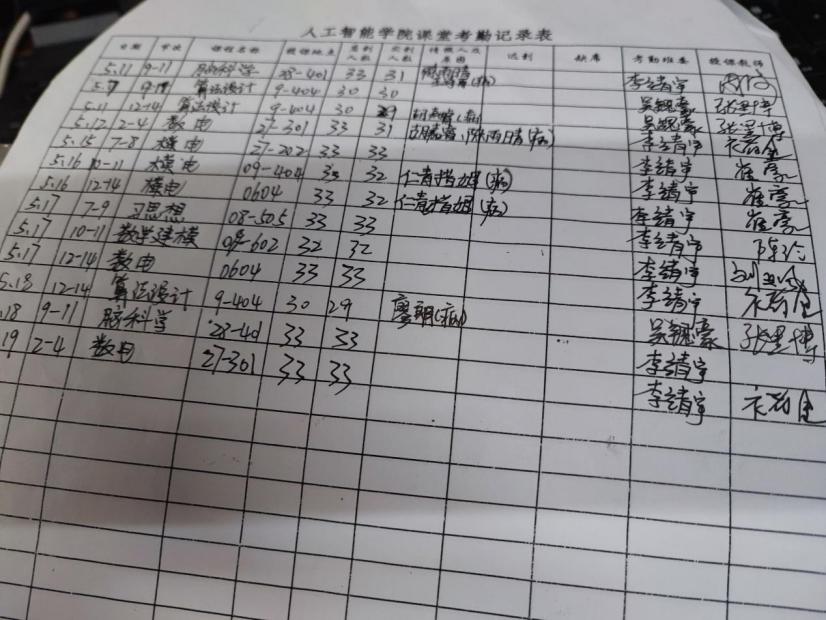 人工智能学院课堂考勤记录表
日期 节次 课程名称 授课地点 应到人数 实到人数 请假人及原因 迟到 缺席 考勤班委 授课教师
5.11 9-11 脑科学 28-401 33 31 陈雨晴 (病) 李靖宇
5.7 算法设计 9-404 30 30 吴锶豪 张墨博
5.11 12-14 算法设计 9-404 30 29 (病) 吴锶豪 张墨博
5.12 2-4 数电 27-301 33 31 陈雨晴(病) 李靖宇
5.15 7-8 模电 27-202 33 33 李靖宇 崔豪
5.16 10-11 模电 09-404 33 32 仁青措姆(病) 李靖宇 崔豪
5.16 12-14 模电 0604 33 32 仁青措姆(病) 李靖宇 崔豪
5.17 7-9 习思想 08-505 33 33 李靖宇
5.17 10-11 数学建模 08-602 32 32 李靖宇
5.17 12-14 数电 0604 33 33 李靖宇
5.18 12-14 算法设计 9-404 30 29 (病) 吴锶豪 张墨博
18 9-11 脑科学 28-401 33 33 李靖宇
19 2-4 数电 27-301 33 33 李靖宇